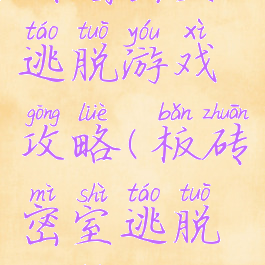 táo tuō yóu xì
逃脱游戏
gōng lüè bǎn zhuān
攻略(板砖
mì shì táo tuō
密室逃脱